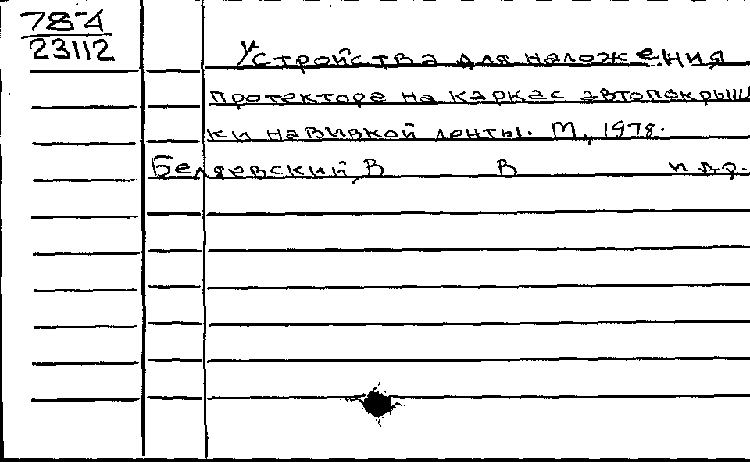 78-4
23112
Устройства для наложения
протекторе на каркас автопокрыш
ки навивкой ленты. М, 1978.
Беляевский, В В и др.